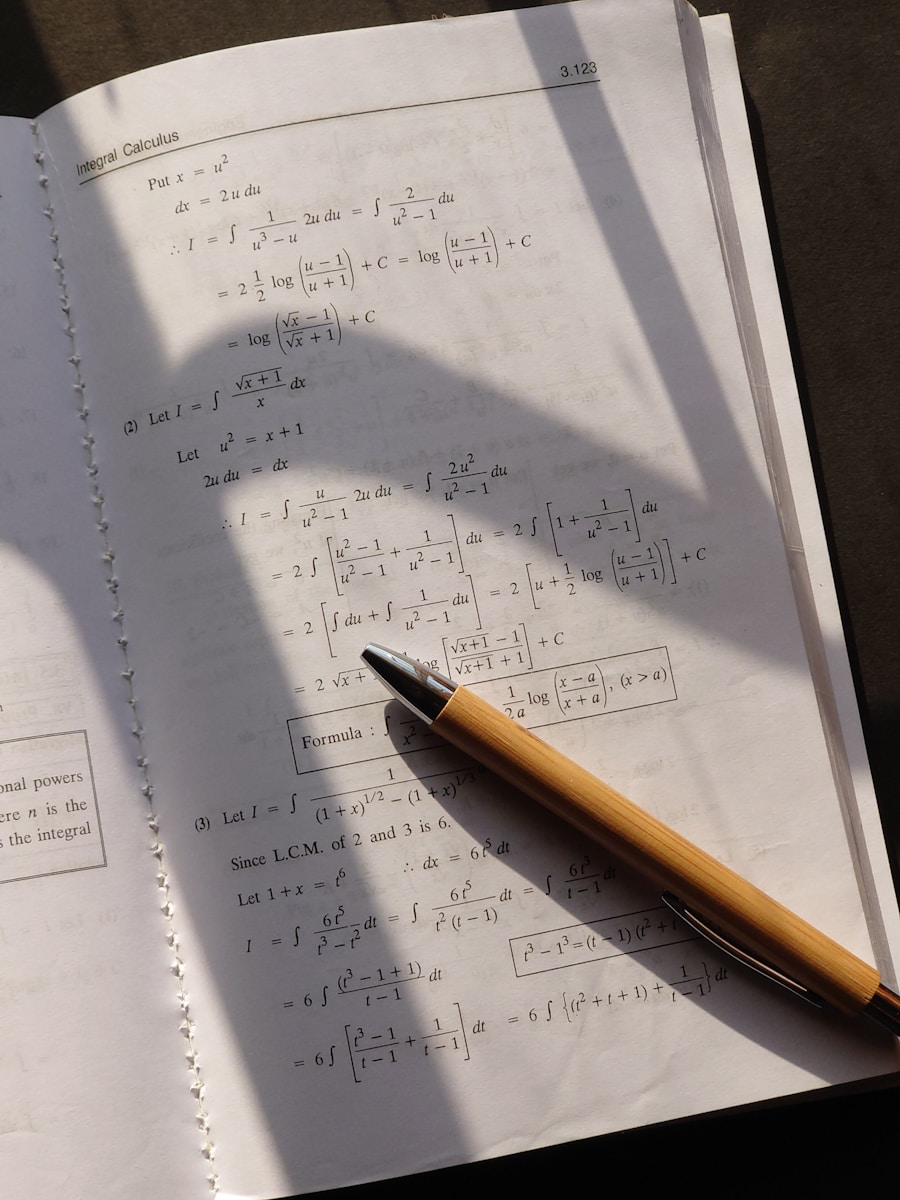 Integral Calculus 3.123
Put x = u²
dx = 2 u du
∴ I = ∫ 1/(u³ − u) 2u du = ∫ 2/(u² − 1) du
= 2 1/2 log ((u − 1)/(u + 1)) + C = log ((u − 1)/(u + 1)) + C
= log ((√x − 1)/(√x + 1)) + C
(2) Let I = ∫ √(x + 1)/x dx
Let u² = x + 1
2u du = dx
∴ I = ∫ u/(u² − 1) 2u du = ∫ 2u²/(u² − 1) du
= 2 ∫ [(u² − 1)/(u² − 1) + 1/(u² − 1)] du = 2 ∫ [1 + 1/(u² − 1)] du
= 2 [∫ du + ∫ 1/(u² − 1) du] = 2 [u + 1/2 log ((u − 1)/(u + 1))] + C
= 2 √x + log [(√(x+1) − 1)/(√(x+1) + 1)] + C
Formula : ∫ x² − 1/(2a) log ((x − a)/(x + a)), (x > a)
(3) Let I = ∫ 1/((1 + x)^1/2 − (1 + x)^1/3
Since L.C.M. of 2 and 3 is 6.
Let 1 + x = t⁶ ∴ dx = 6 t⁵ dt
I = ∫ 6 t⁵/(t³ − t²) dt = ∫ 6 t⁵/(t² (t − 1)) dt = ∫ 6 t³/(t − 1) dt
t³ − 1³ = (t − 1) (t² + t
= 6 ∫ (t³ − 1 + 1)/(t − 1) dt
= 6 ∫ [(t³ − 1)/(t − 1) + 1/(t − 1)] dt = 6 ∫ {(t² + t + 1) + 1/(t − 1)} dt
onal powers
ere n is the
s the integral